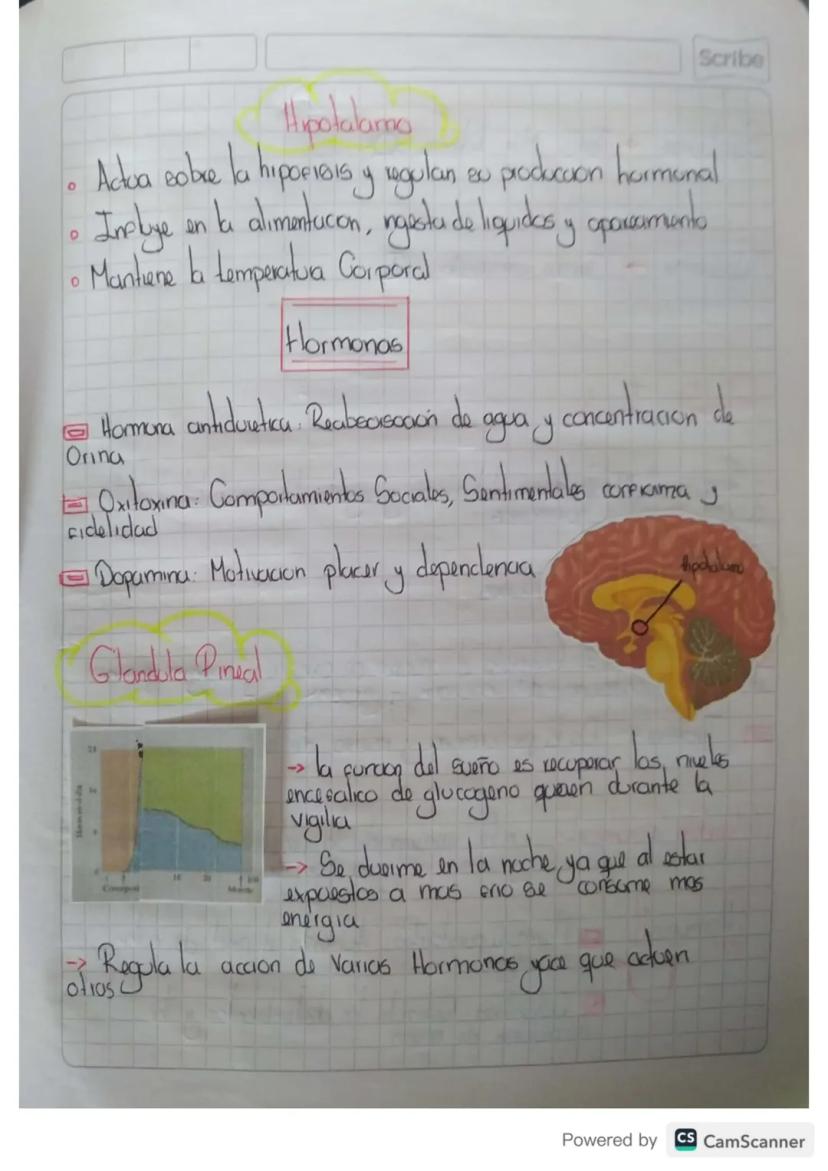 Scribe
Hipotalamo
Actua sobre la hipofisis y regulan su produccion hormonal
Influye en la alimentacion, ingesta de liquidos y apareamiento
Mantiene la temperatura Corporal
Hormonas
Hormona antidiuretica: Reabsorcion de agua y concentracion de
Orina
Oxitoxina: Comportamientos Sociales, Sentimentales confianza y
fidelidad
Dopamina: Motivacion placer y dependencia
hipotalamo
Glandula Pineal
→ la funcion del sueño es recuperar los niveles
encefalico de glucogeno queen durante la
vigilia
→ Se duerme en la noche, ya que al estar
expuestos a mas frio se consume mas
energia
→ Regula la accion de varias Hormonas yace que actuen
otros
Powered by CS CamScanner